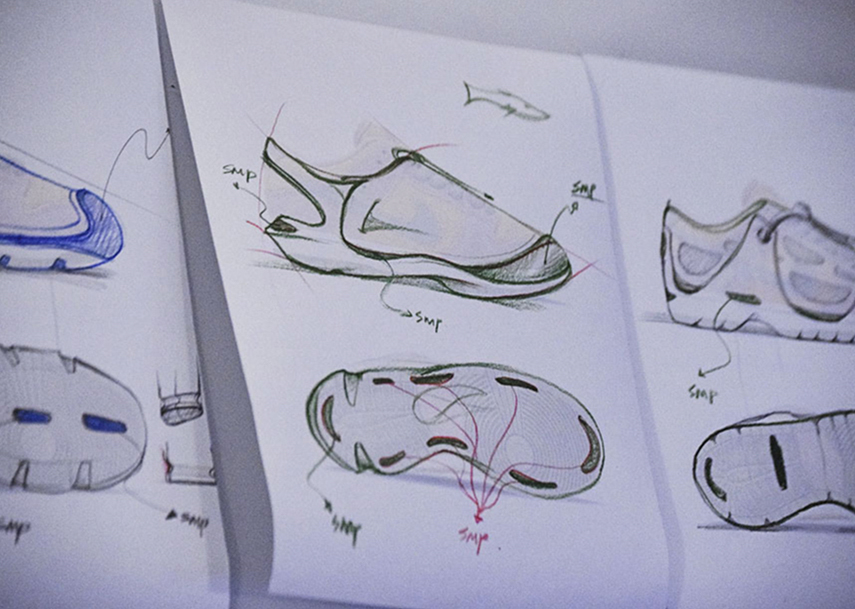 smp
smp
smp
smp
smp
smp
smp
smp
smp